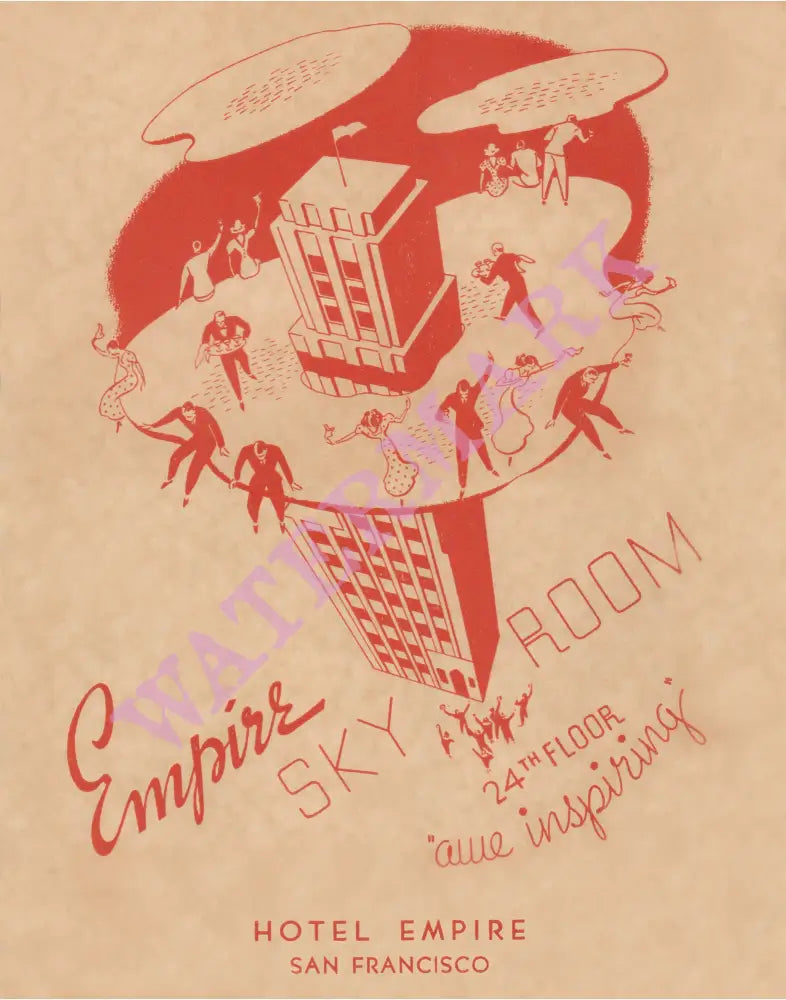 WATERMARK
Empire
SKY ROOM
24TH FLOOR
"awe inspiring"
HOTEL EMPIRE
SAN FRANCISCO